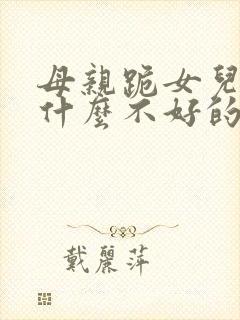 母親跪女兒
什麼不好的
戴麗萍